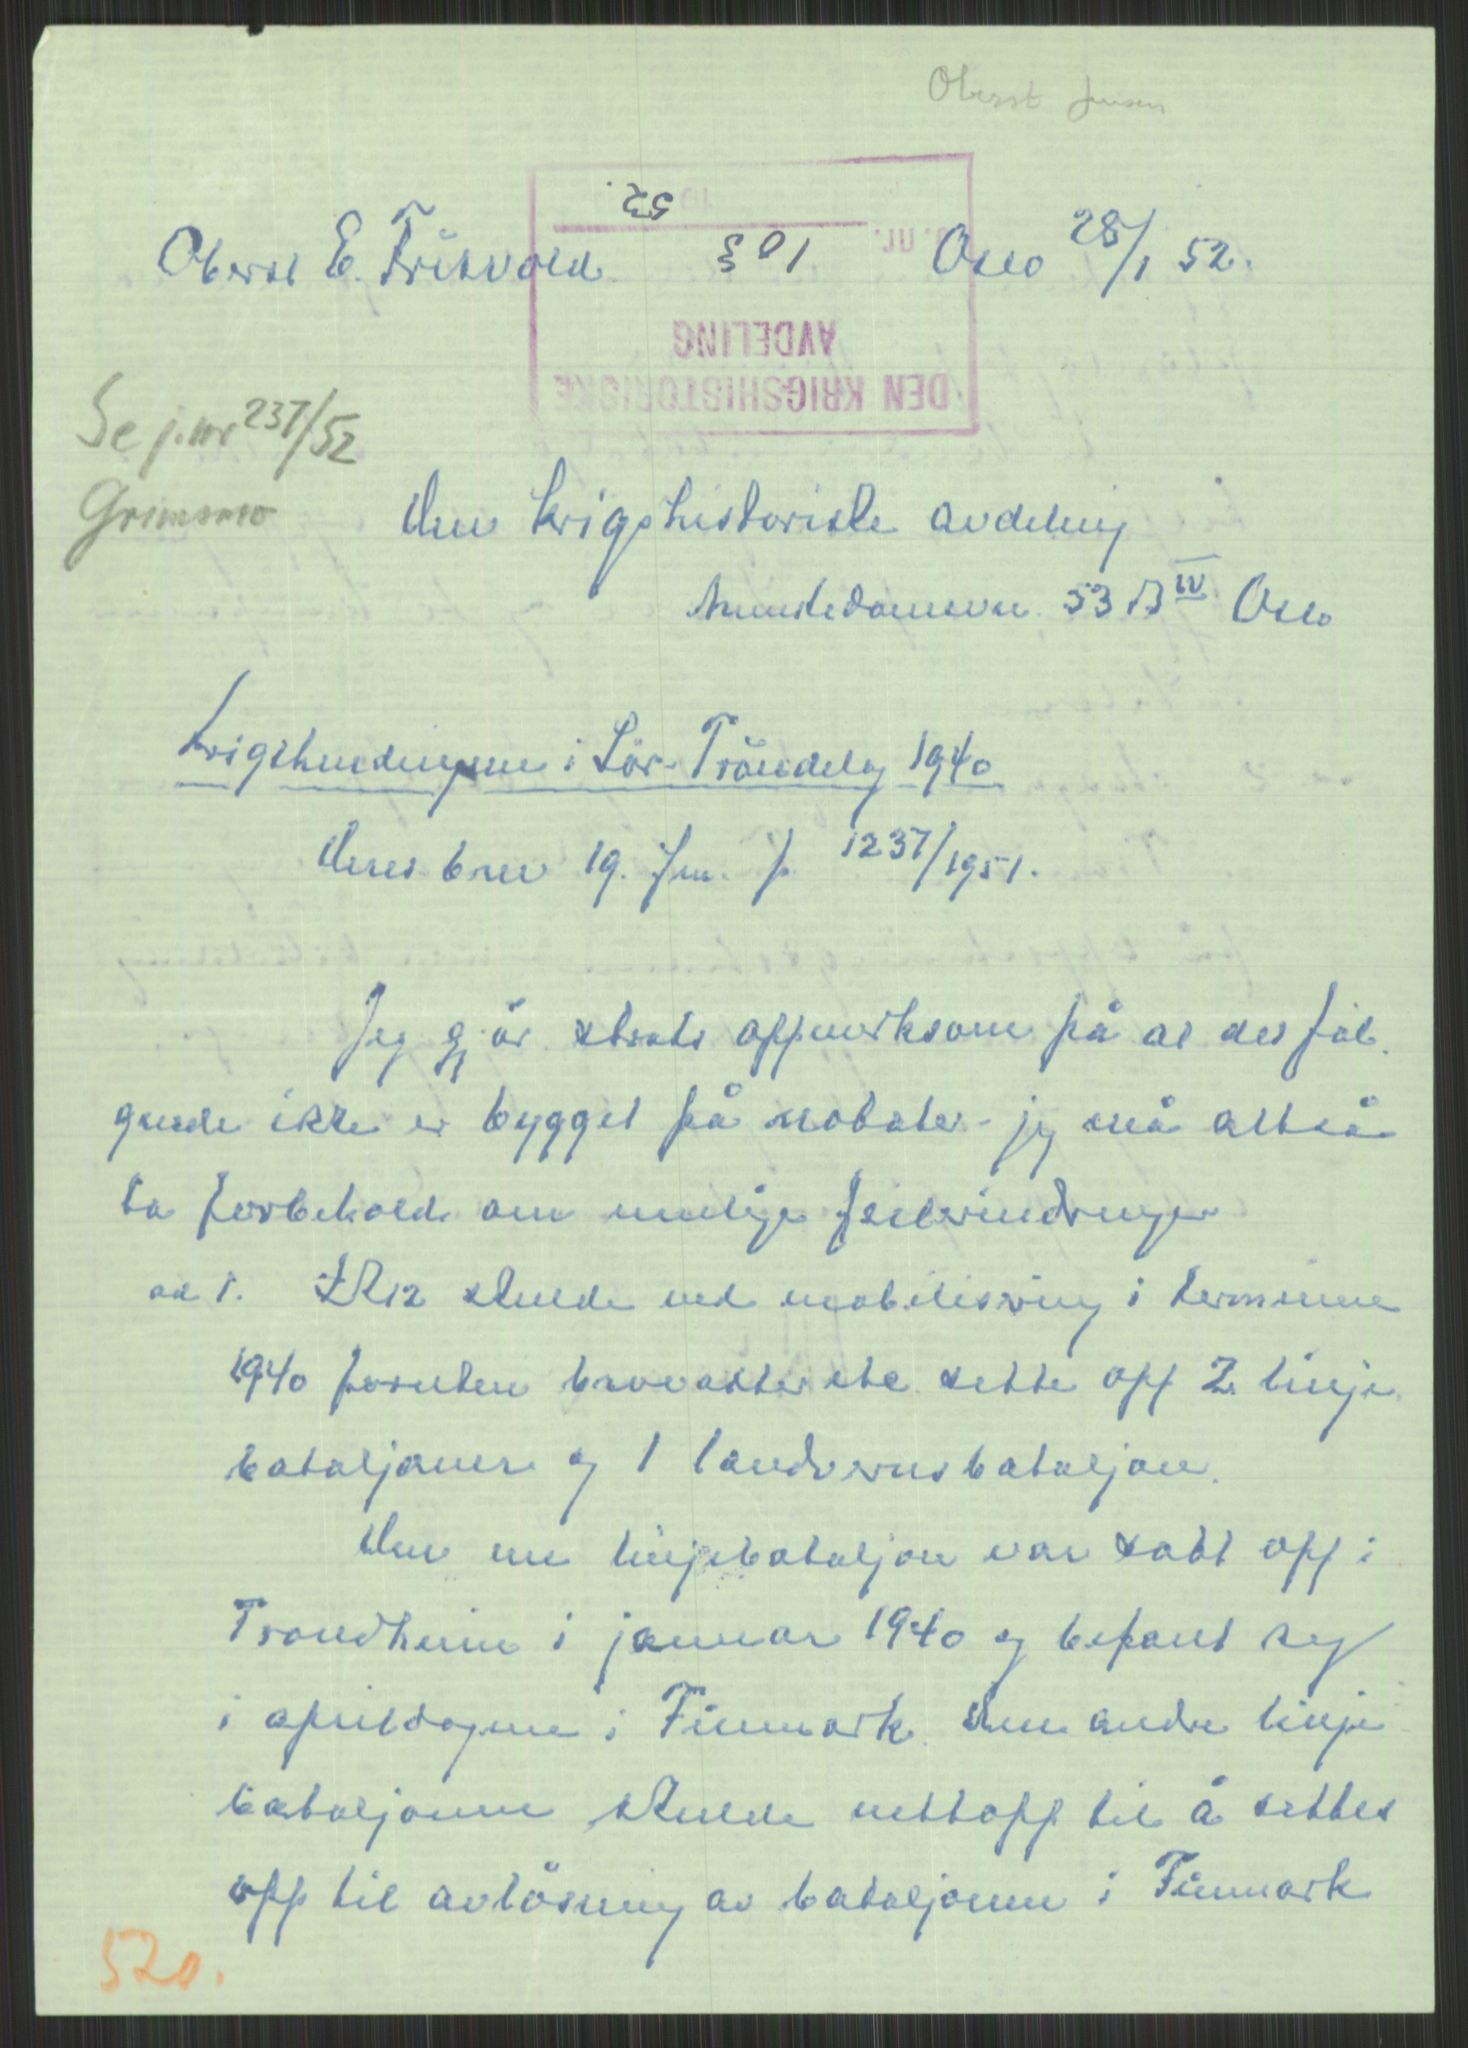 Oberst Jensen
Oberst E. Frisvold. Oslo 28/1 52.
DEN KRIGSHISTORISKE
AVDELING
J. nr. 103
52.
Se j.nr 237/52
Grimsmo
Den krigshistoriske avdeling
Munkedamsvn. 53 B IV Oslo
Krigshendingene i Sör-Tröndelag 1940
Deres brev 19. jan. j. 1237/1951.
Jeg gjör straks oppmerksom på at det föl-
gende ikke er bygget på notater - jeg må altså
ta forbehold om mulige feilerindringer
ad 1. IR12 skulde ved mobilisering i terminene
1940 foruten brovakter etc. sette opp 2 linje
bataljoner og 1 landvernsbataljon.
Den ene linjebataljon var satt opp i
Trondheim i januar 1940 og befant seg
i aprildagene i Finmark. Den andre linje
bataljonen skulde nettopp til å settes
opp til avlösning av bataljonen i Finmark
520.